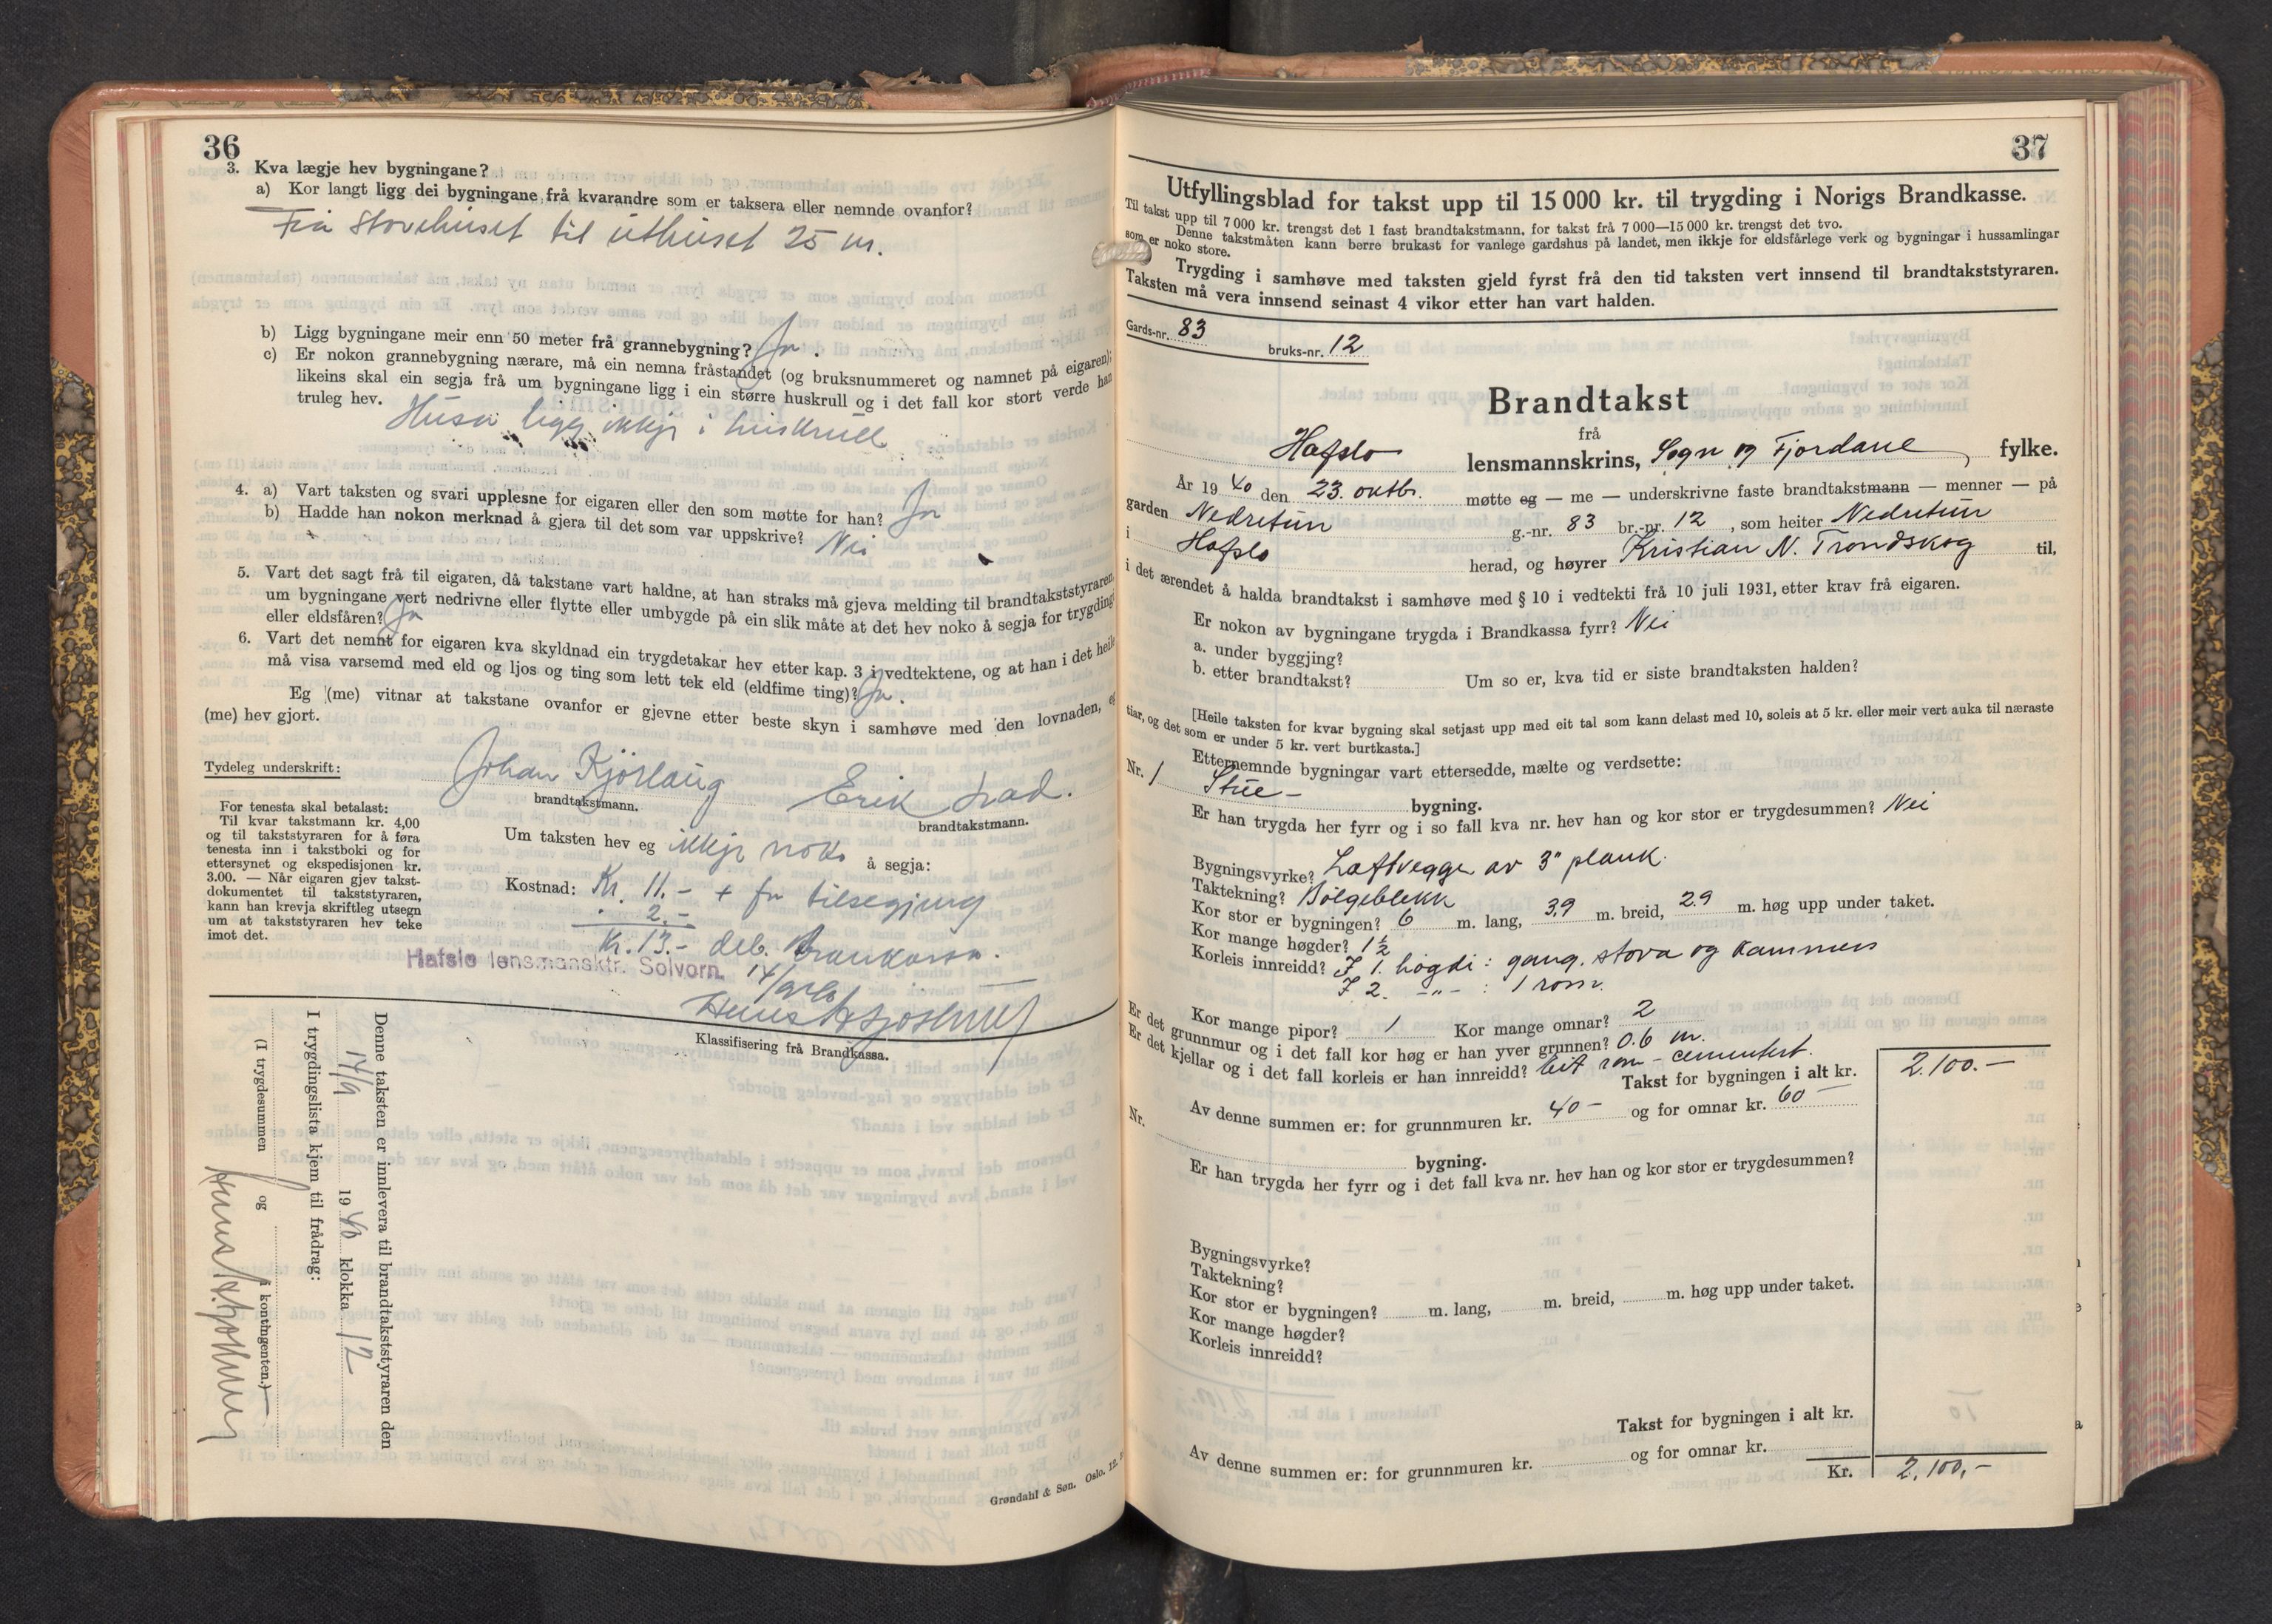 36
3. Kva lægje hev bygningane?
a) Kor langt ligg dei bygningane frå kvarandre som er taksera eller nemnde ovanfor?
Frå stovehuset til uthuset 25 m.
b) Ligg bygningane meir enn 50 meter frå grannebygning? Ja.
c) Er nokon grannebygning nærare, må ein nemna fråstandet (og bruksnummeret og namnet på eigaren);
likeins skal ein segja frå um bygningane ligg i ein større huskrull og i det fall kor stort verde han
truleg hev.
Husa ligg ikkje i huskrull
4. a) Vart taksten og svari upplesne for eigaren eller den som møtte for han? Ja
b) Hadde han nokon merknad å gjera til det som var uppskrive? Nei
5. Vart det sagt frå til eigaren, då takstane vart haldne, at han straks må gjeva melding til brandtakststyraren,
um bygningane vert nedrivne eller flytte eller umbygde på ein slik måte at det hev noko å segja for trygding
eller eldsfåren? Ja
6. Vart det nemnt for eigaren kva skyldnad ein trygdetakar hev etter kap. 3 i vedtektene, og at han i det heile
må visa varsemd med eld og ljos og ting som lett tek eld (eldfime ting)? Ja.
Eg (me) vitnar at takstane ovanfor er gjevne etter beste skyn i samhøve med den lovnaden, eg
(me) hev gjort.
Tydeleg underskrift:
Johan Kjörlaug Erik Lad.
brandtakstmann. brandtakstmann.
For tenesta skal betalast:
Til kvar takstmann kr. 4,00
og til takststyraren for å føra
tenesta inn i takstboki og for
ettersynet og ekspedisjonen kr.
3.00. — Når eigaren gjev takst-
dokumentet til takststyraren,
kann han krevja skriftleg utsegn
um at takststyraren hev teke
imot det.
Um taksten hev eg ikkje noko å segja:
Kostnad: Kr. 11.- + for tilsegjing
2.-
Kr. 13.- deb. Brankassa.
Hafslo lensmansktr. Solvorn. 14/
Klassifisering frå Brandkassa.
Denne taksten er innlevera til brandtakststyraren den
14/9 1940 klokka 12
I trygdingslista kjem til frådrag:
(I trygdesummen og i kontingenten.)
Grøndahl & Søn. Oslo. 12.
37
Utfyllingsblad for takst upp til 15 000 kr. til trygding i Norigs Brandkasse.
Til takst upp til 7 000 kr. trengst det 1 fast brandtakstmann, for takst frå 7 000—15 000 kr. trengst det tvo.
Denne takstmåten kann berre brukast for vanlege gardshus på landet, men ikkje for eldsfårlege verk og bygningar i hussamlingar
som er noko store.
Trygding i samhøve med taksten gjeld fyrst frå den tid taksten vert innsend til brandtakststyraren.
Taksten må vera innsend seinast 4 vikor etter han vart halden.
Gards-nr. 83 bruks-nr. 12
Brandtakst
frå
Hafslo lensmannskrins, Sogn og Fjordane fylke.
År 1940 den 23. oktbr. møtte eg — me — underskrivne faste brandtakstmann — menner — på
garden Nedretun g.-nr. 83 br.-nr. 12, som heiter Nedretun
i Hafslo herad, og høyrer Kristian N. Trondskog til,
i det ærendet å halda brandtakst i samhøve med § 10 i vedtekti frå 10 juli 1931, etter krav frå eigaren.
Er nokon av bygningane trygda i Brandkassa fyrr? Nei
a. under byggjing?
b. etter brandtakst? Um so er, kva tid er siste brandtaksten halden?
[Heile taksten for kvar bygning skal setjast upp med eit tal som kann delast med 10, soleis at 5 kr. eller meir vert auka til næraste
tiar, og det som er under 5 kr. vert burtkasta.]
Etternemnde bygningar vart ettersedde, mælte og verdsette:
Nr. 1 Stue- bygning.
Er han trygda her fyrr og i so fall kva nr. hev han og kor stor er trygdesummen? Nei
Bygningsvyrke? Laftvegger av 3" plank.
Taktekning? Bölgeblekk
Kor stor er bygningen? 6 m. lang, 3.9 m. breid, 2.9 m. høg upp under taket.
Kor mange høgder? 1½
Korleis innreidd? I 1. högdi: gang, stova og kammers
I 2. -"- : 1 rom.
Kor mange pipor? 1 Kor mange omnar? 2
Er det grunnmur og i det fall kor høg er han yver grunnen? 0.6 m.
Er det kjellar og i det fall korleis er han innreidd? Eit rom - cementert.
Takst for bygningen i alt kr. 2.100.-
Av denne summen er: for grunnmuren kr. 40- og for omnar kr. 60-
Nr. bygning.
Er han trygda her fyrr og i det fall kva nr. hev han og kor stor er trygdesummen?
Bygningsvyrke?
Taktekning?
Kor stor er bygningen? m. lang, m. breid, m. høg upp under taket.
Kor mange høgder?
Korleis innreidd?
Takst for bygningen i alt kr.
Av denne summen er: for grunnmuren kr. og for omnar kr.
Kr. 2.100,-